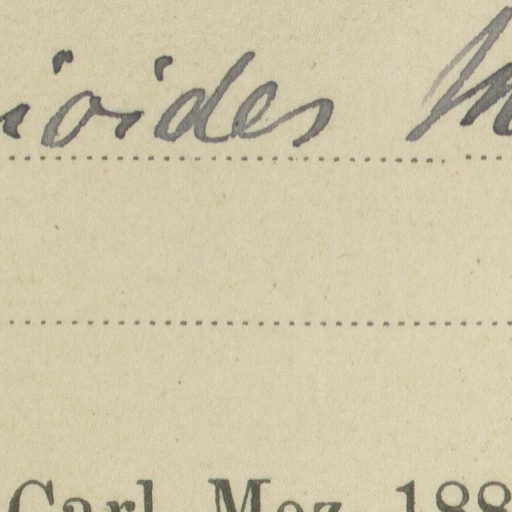 ioides M
Carl Mez 188